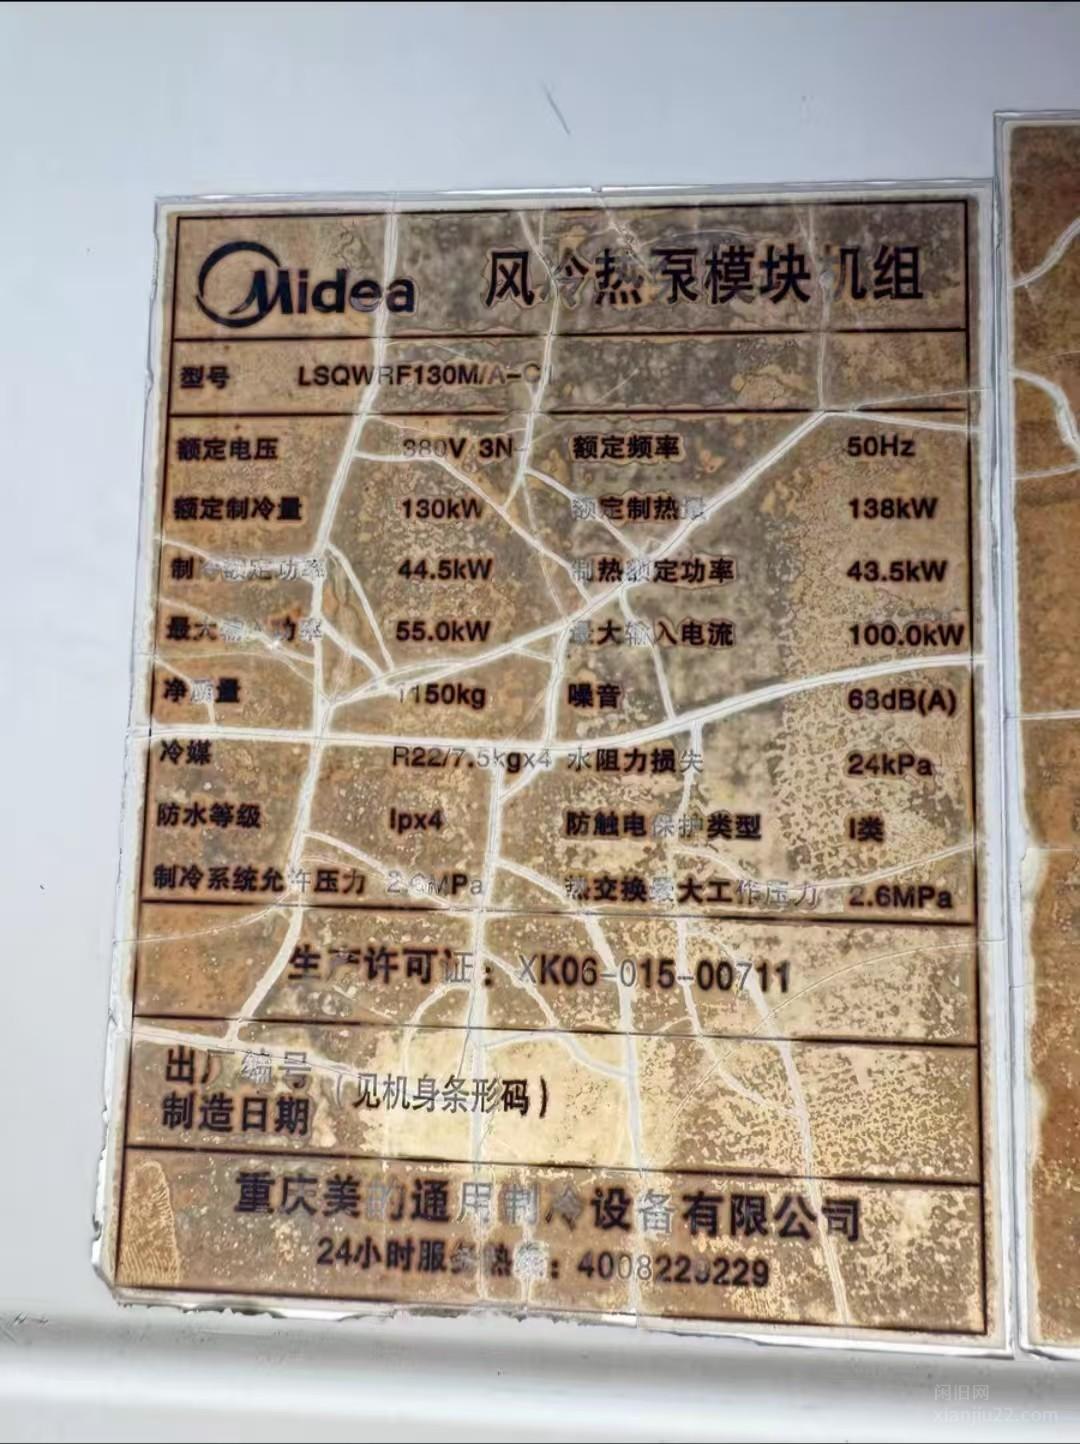 Midea 风冷热泵模块机组
型号 LSQWRF130M/A-C
额定电压 380V 3N~ 额定频率 50Hz
额定制冷量 130kW 额定制热量 138kW
制冷额定功率 44.5kW 制热额定功率 43.5kW
最大输入功率 55.0kW 最大输入电流 100.0kW
净质量 1150kg 噪音 68dB(A)
冷媒 R22/7.5kgx4 水阻力损失 24kPa
防水等级 Ipx4 防触电保护类型 I类
制冷系统允许压力 MPa 热交换最大工作压力 2.6MPa
生产许可证：XK06-015-00711
出厂编号
制造日期
(见机身条形码)
重庆美的通用制冷设备有限公司
24小时服务热线：4008220229
闲旧网
xianjiu22.com